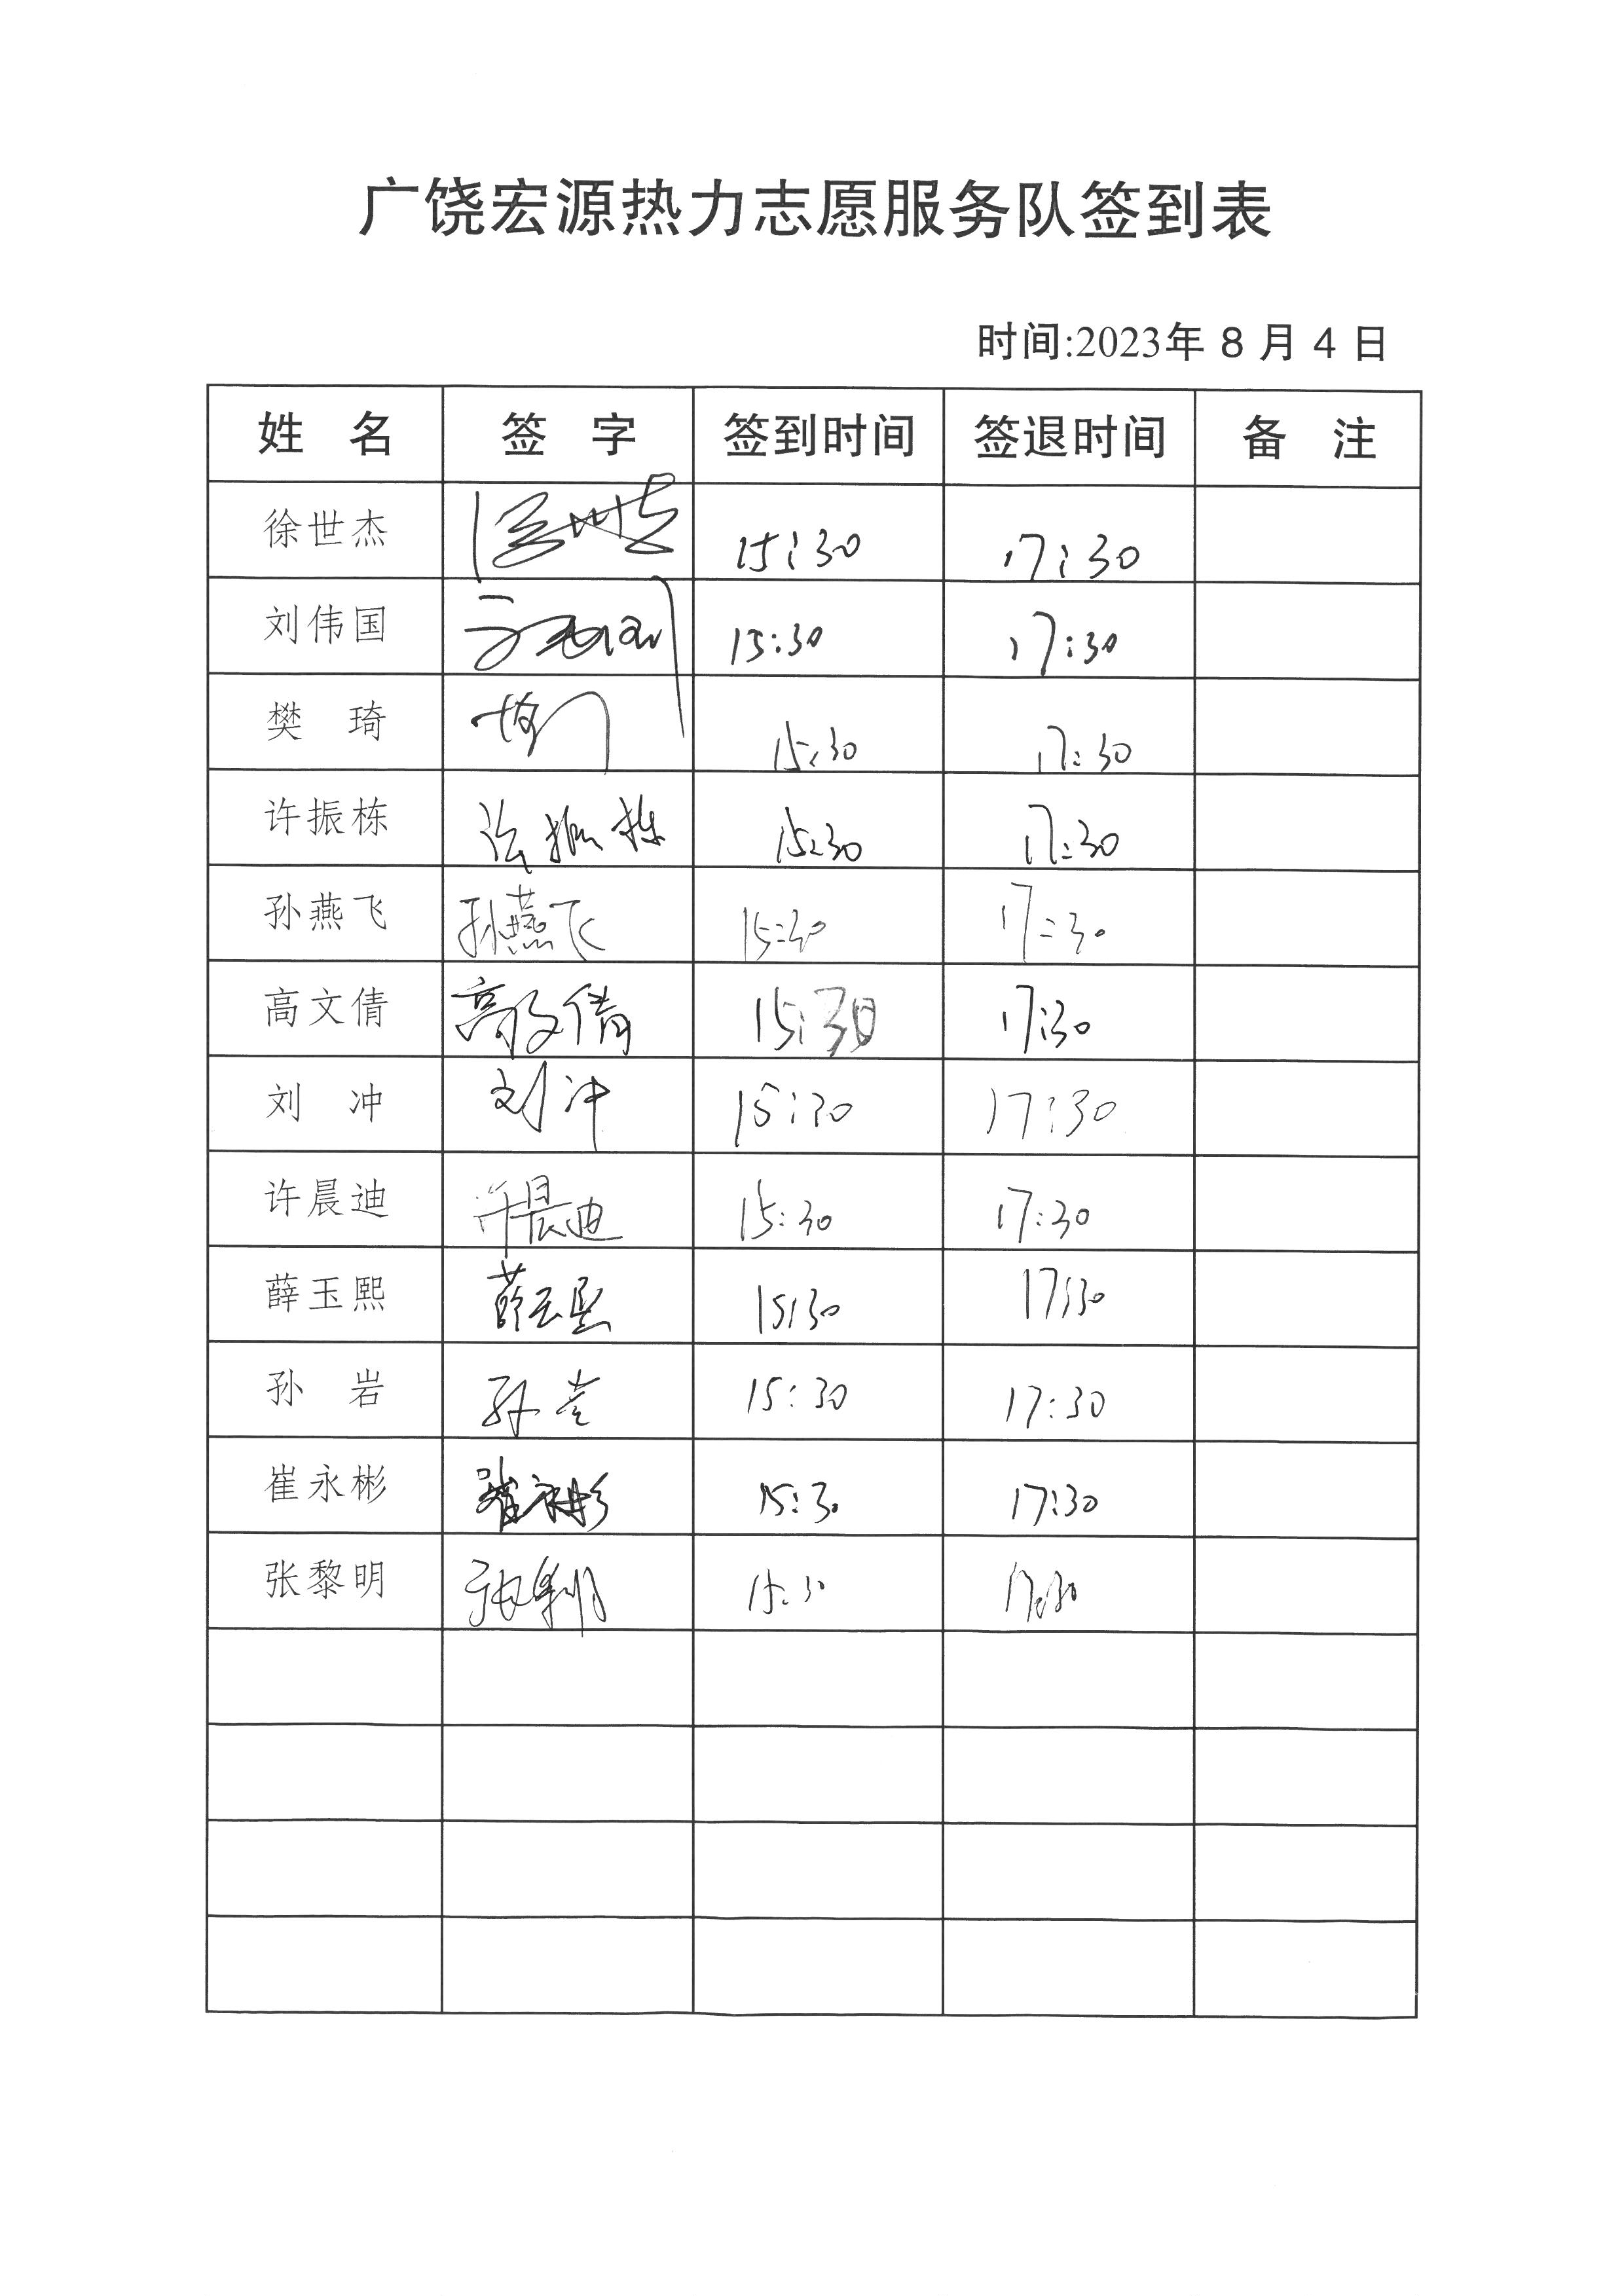 广饶宏源热力志愿服务队签到表
时间:2023年8月4日
姓 名 签 字 签到时间 签退时间 备 注
徐世杰 徐世杰 15:30 17:30
刘伟国 15:30 17:30
樊 琦 15:30 17:30
许振栋 许振栋 15:30 17:30
孙燕飞 孙燕飞 15:30 17:30
高文倩 高文倩 15:30 17:30
刘 冲 刘冲 15:30 17:30
许晨迪 许晨迪 15:30 17:30
薛玉熙 薛玉熙 15:30 17:30
孙 岩 孙岩 15:30 17:30
崔永彬 崔永彬 15:30 17:30
张黎明 张黎明 15:30 17:30